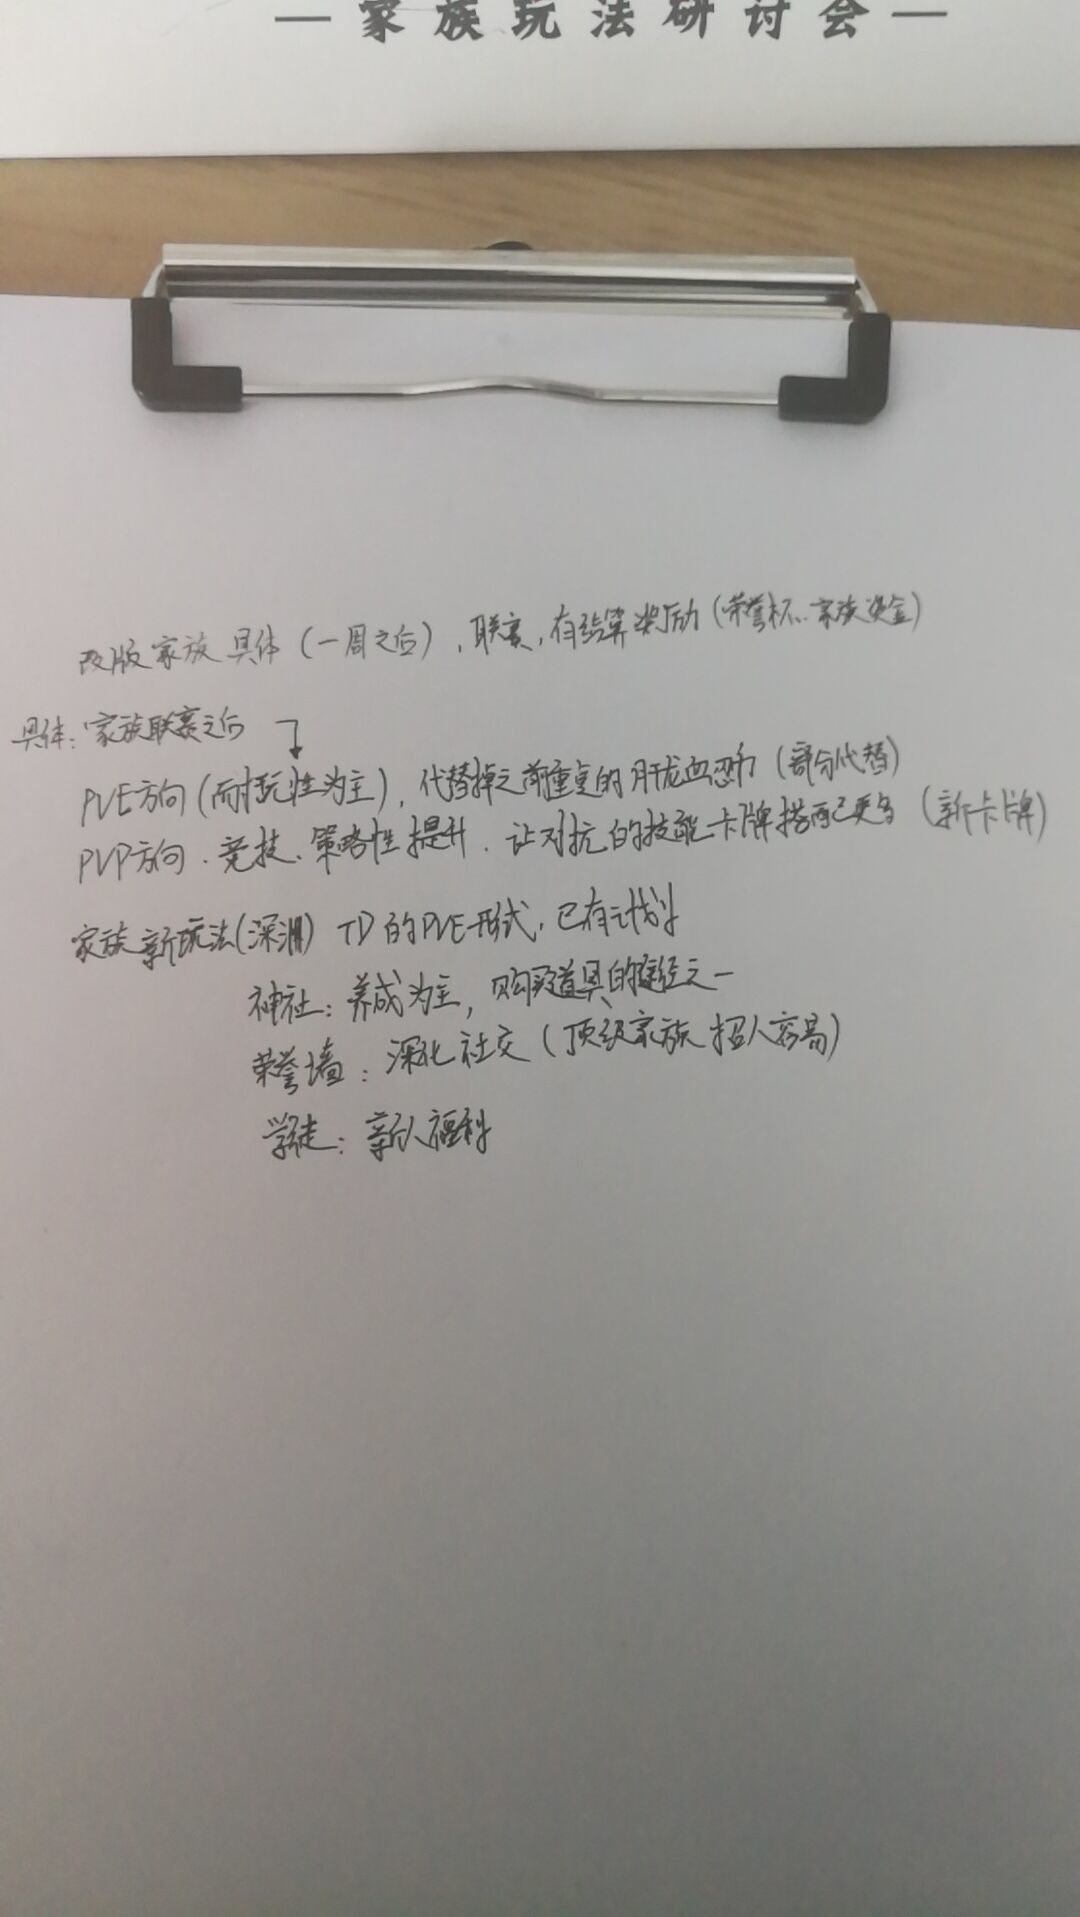 — 家族玩法研讨会 —
改版家族具体（一周之后），联赛，有结算奖励（荣誉杯、家族资金）
具体：家族联赛之后
PVE方向（耐玩性为主），代替掉之前重复的肝龙血忍币（部分代替）
PVP方向、竞技、策略性提升、让对抗的技能卡牌搭配更多（新卡牌）
家族新玩法（深渊）TD的PVE形式，已有计划
神社：养成为主，购买道具的途径之一
荣誉墙：深化社交（顶级家族招人容易）
学徒：新人福利